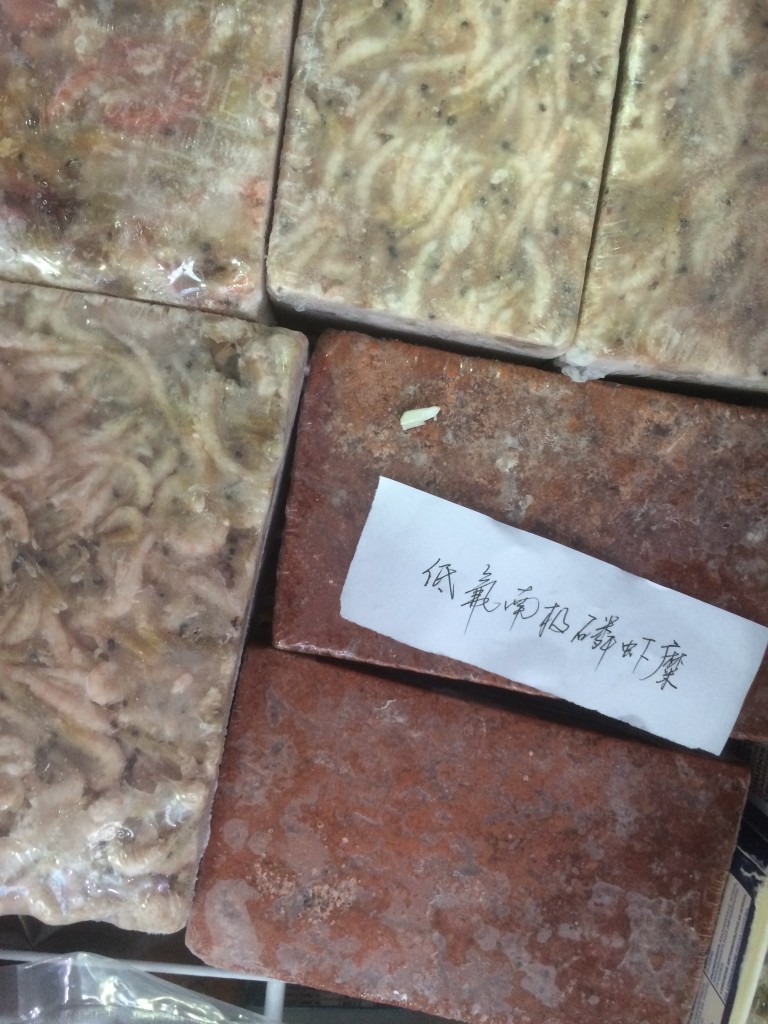 低氟南极磷虾糜